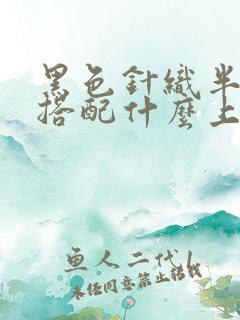 黑色針織半
搭配什麼上
魚人二代
未經同意禁止轉載